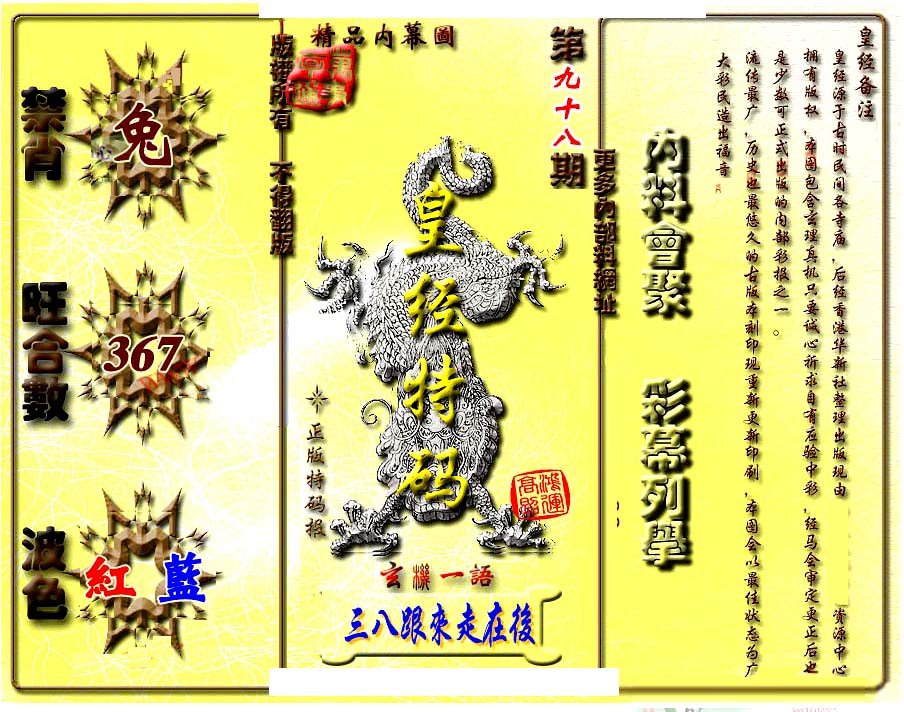 精品内幕圖
第九十八期
版權所有 不得翻版
更多内部料網址
禁肖
兔
旺合數
367
波色
紅 藍
皇经特码
正版特码报
鴻運
高照
玄機一語
三八跟來走在後
内料會聚 彩幕列舉
皇经备注
皇经源于古时民间各寺庙，后经香港华新社整理出版现由 资源中心
拥有版权，本图包含玄理真机只要诚心祈求自有应验中彩，经马会审定更正后也
是少数可正式出版的内部彩报之一。
流传最广，历史也最悠久的古版本刻印现重新更新印刷，本图会以最佳状态为广
大彩民造出福音